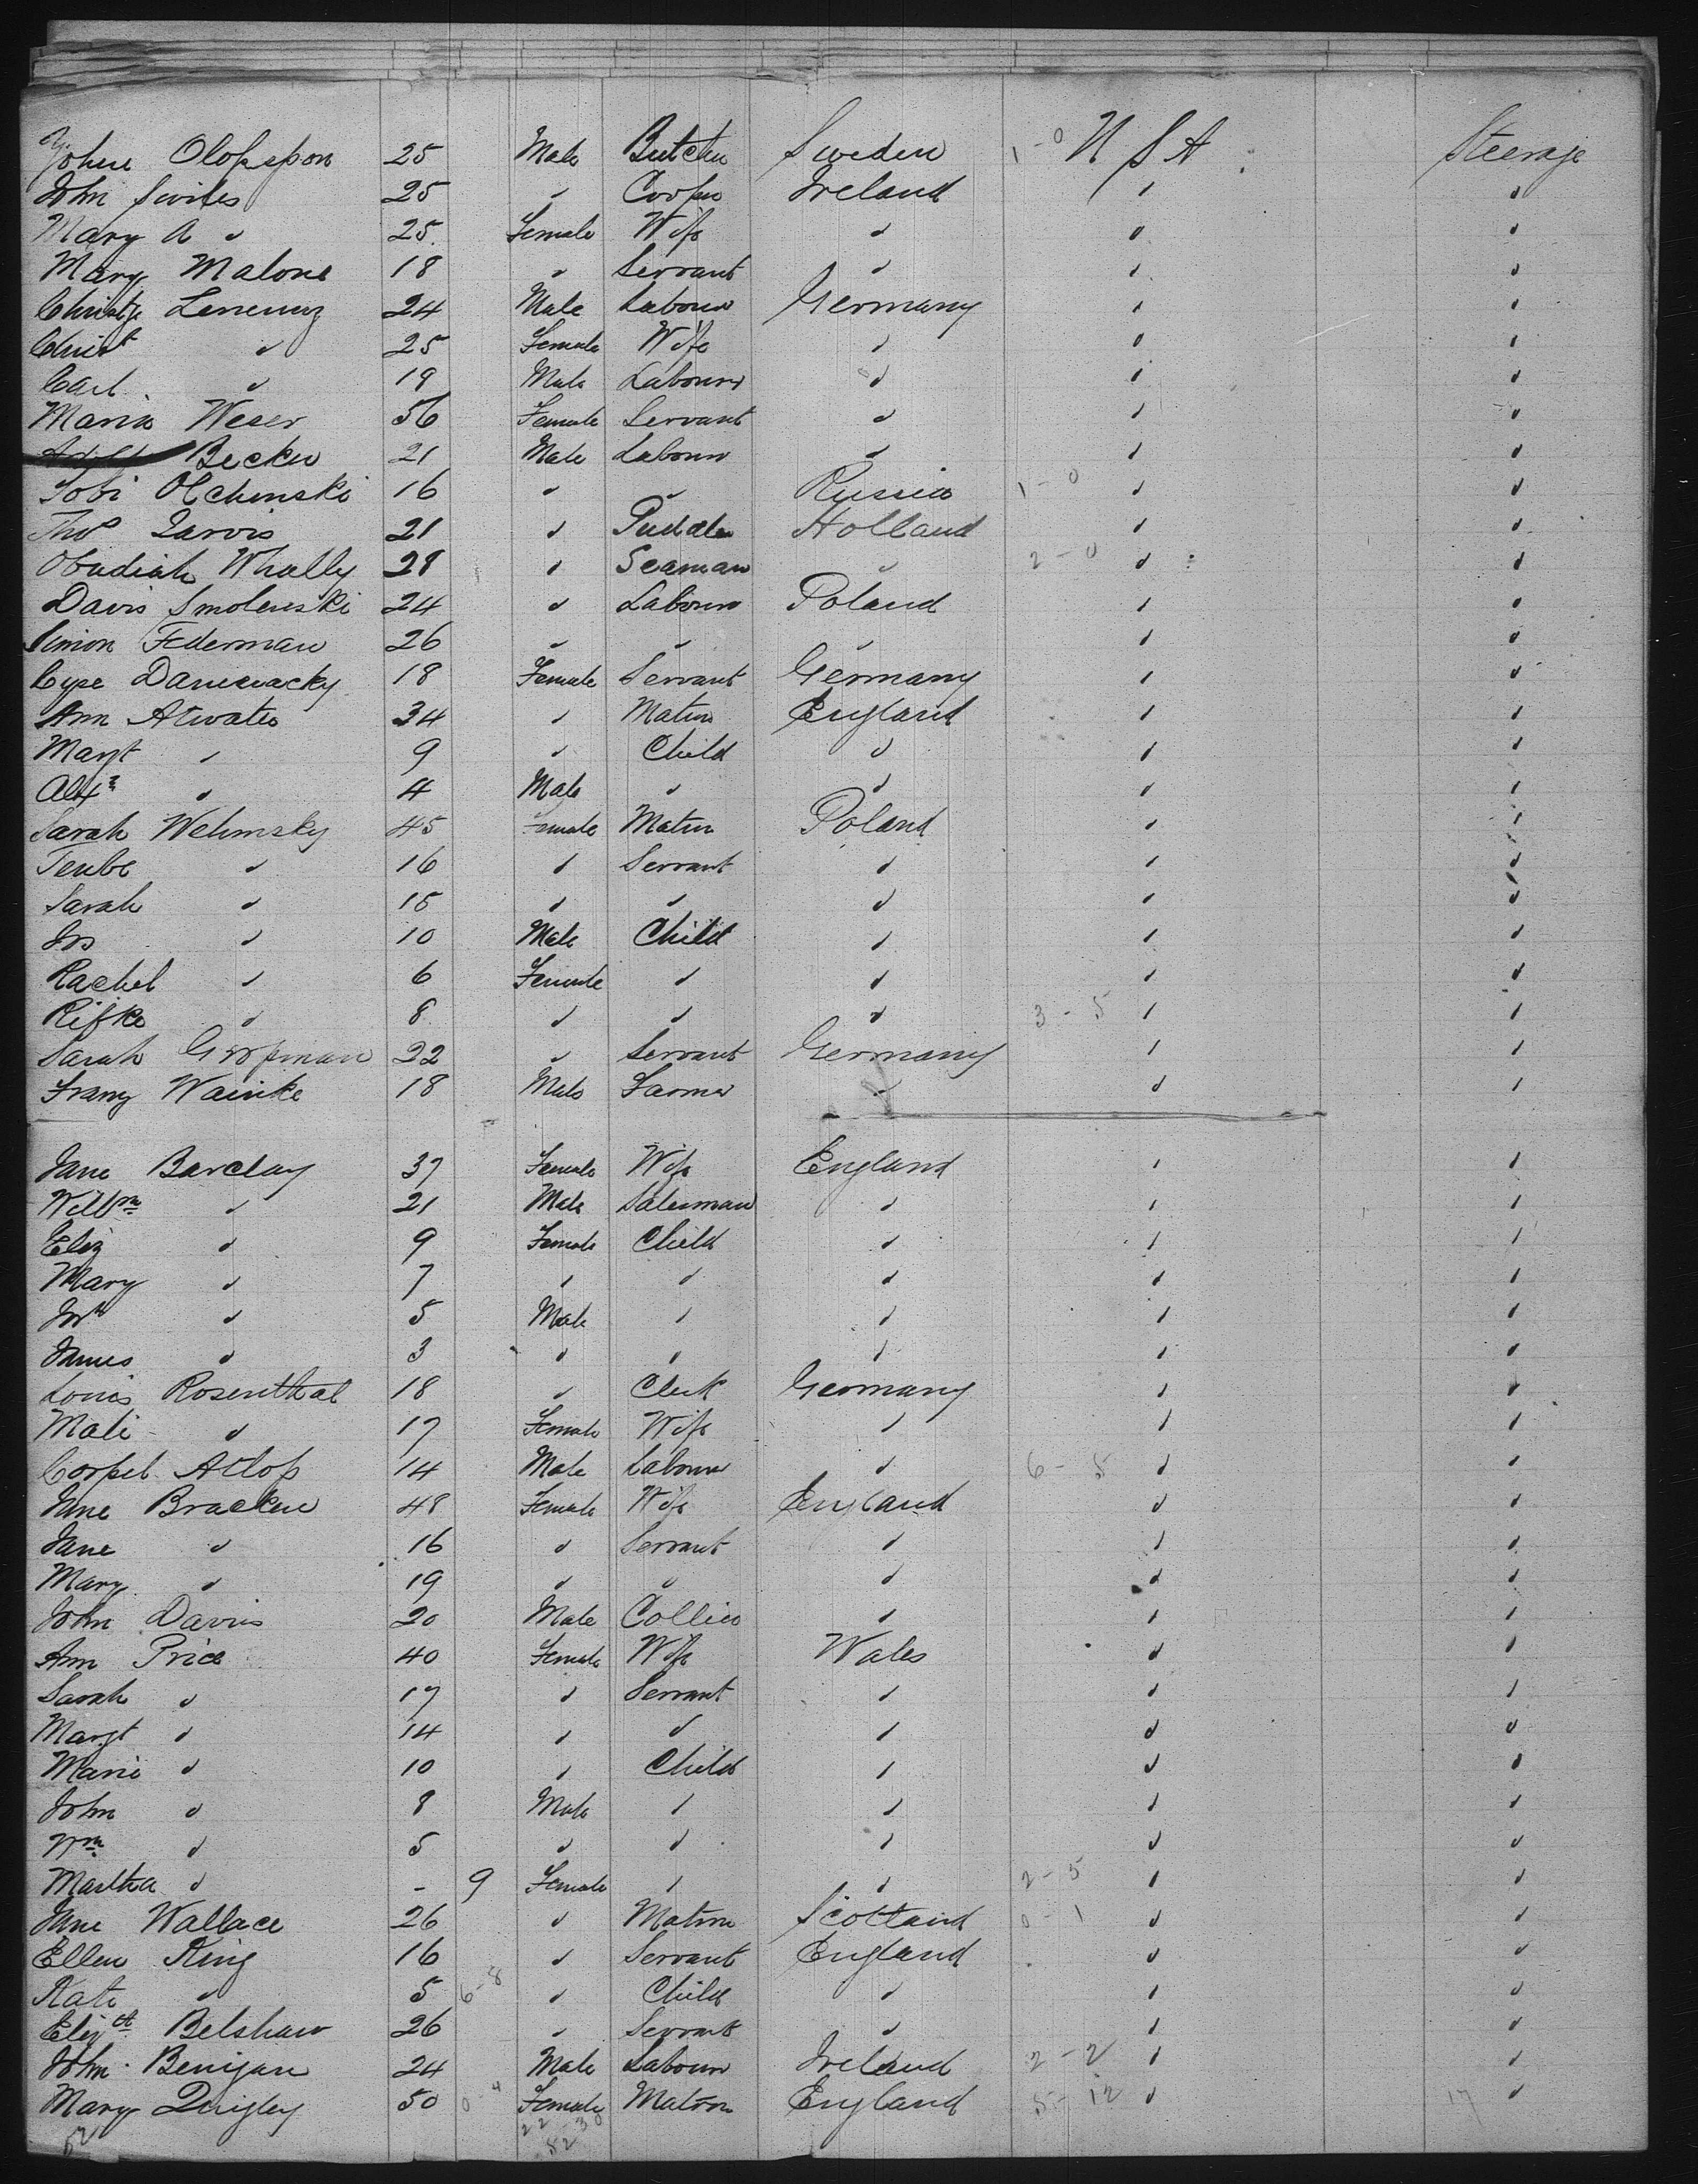 Johne Olofsson 25 Male Butcher Sweden 1-0 U S A Steerage
John 25 " Cooper Ireland " "
Mary A " 25 Female Wife " " "
Mary Malone 18 " Servant " " "
Christ 24 Male Labourer Germany " "
Christ " 25 Female Wife " " "
Carl " 19 Male Labourer " " "
Maria Weser 56 Female Servant " " "
Becker 21 Male Labourer " " "
Tobi Olchenski 16 " " Russia 1-0 " "
Thos Jarvis 21 " Puddler Holland " "
Obadiah Whally 28 " Seaman " 2-0 " "
Davis Smolenski 24 " Labourer Poland " "
Simon Federman 26 " " " " "
18 Female Servant Germany " "
Ann Atwater 34 " Matron England " "
Margt " 9 " Child " " "
Alexr " 4 Male " " " "
Sarah Welimsky 45 Female Matron Poland " "
Teube " 16 " Servant " " "
Sarah " 15 " " " " "
Jos " 10 Male Child " " "
Rachel " 6 Female " " " "
Rifke " 8 " " " 3-5 " "
Sarah Grossman 22 " Servant Germany " "
Franz Wainke 18 Male Farmer " " "
Jane Barclay 37 Female Wife England " "
Willm " 21 Male Salesman " " "
Eliz " 9 Female Child " " "
Mary " 7 " " " " "
" 5 Male " " " "
James " 3 " " " " "
Louis Rosenthal 18 " Clerk Germany " "
Mali " 17 Female Wife " " "
14 Male Labourer " 6-5 " "
Jane Bracken 48 Female Wife England " "
Jane " 16 " Servant " " "
Mary " 19 " " " " "
John Davis 20 Male Collier " " "
Ann Price 40 Female Wife Wales " "
Sarah " 17 " Servant " " "
Margt " 14 " " " " "
Marie " 10 " Child " " "
John " 8 Male " " " "
Wm " 5 " " " " "
Martha " - 9 Female " " 2-5 " "
Jane Wallace 26 " Matron Scotland 0-1 " "
Ellen King 16 " Servant England " "
Kate " 5 6-8 " Child " " "
Elizth Belshaw 26 " Servant " " "
John Benigan 24 Male Labourer Ireland 2-2 " "
Mary Quigley 50 0-4 Female Matron England 5-12 " 17 "
52 22 30
52